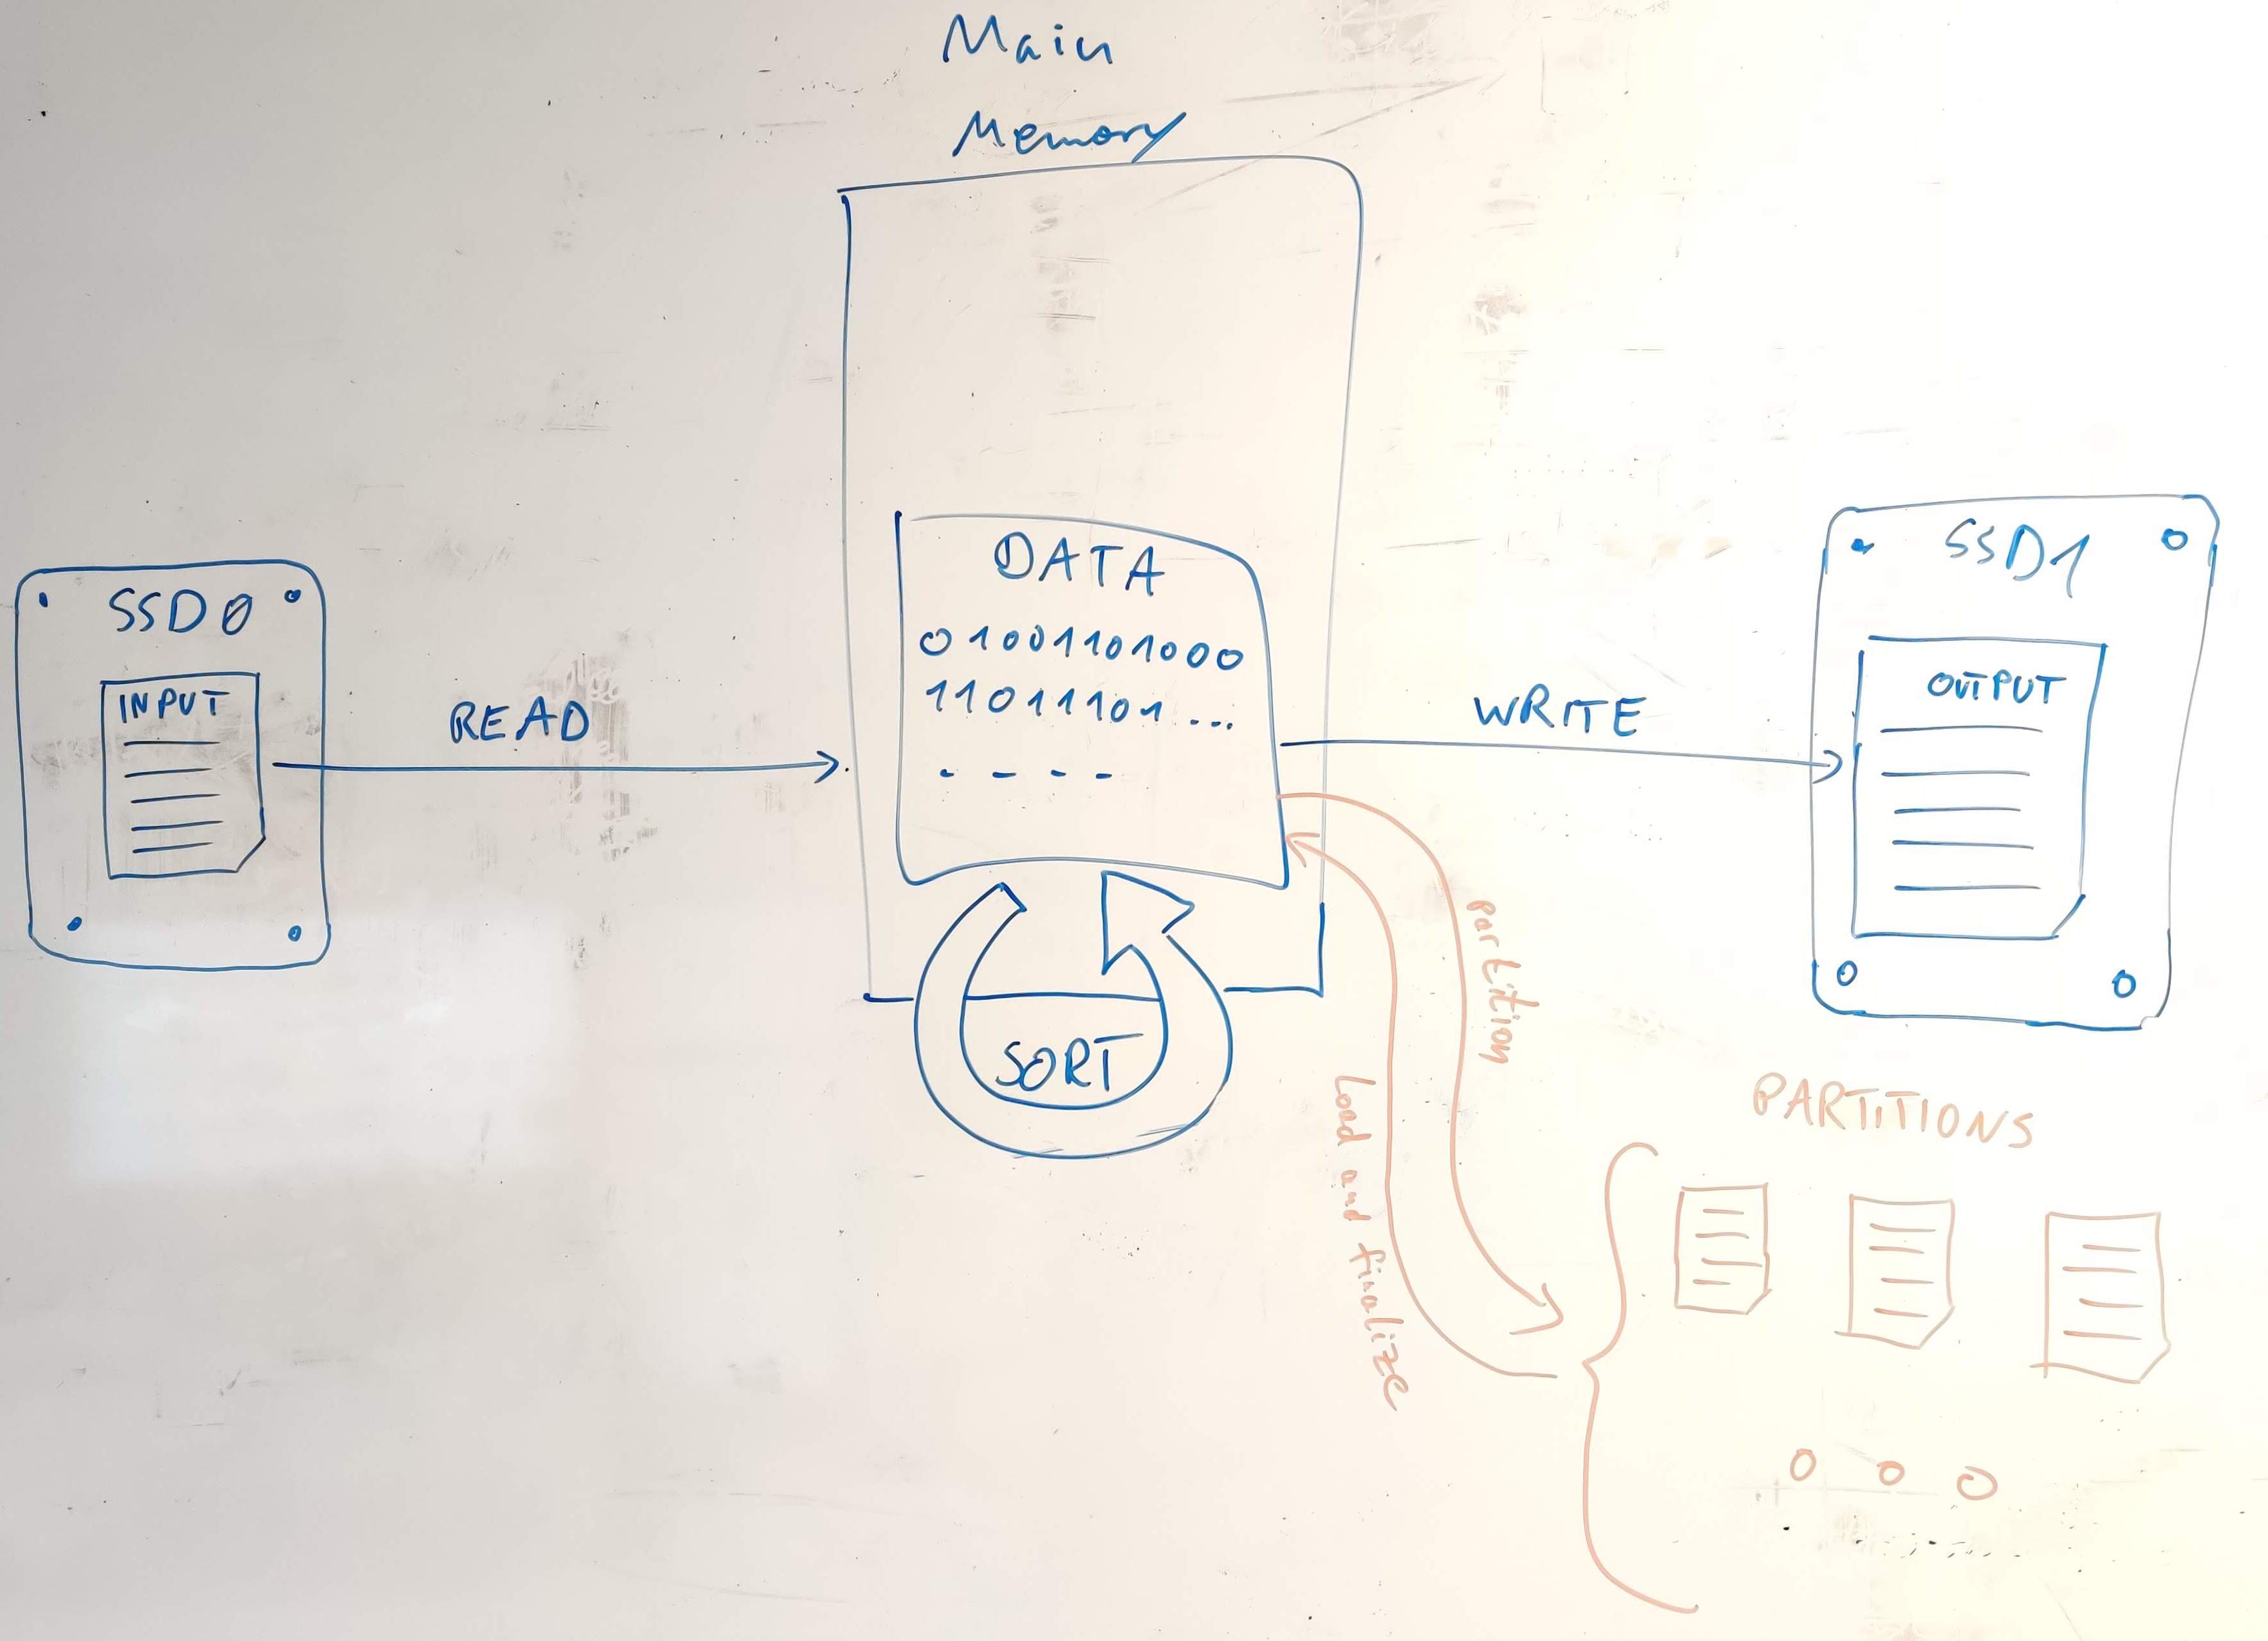 Main
Memory
SSD0
INPUT
READ
DATA
01001101000
11011101...
- - - -
SORT
WRITE
SSD1
OUTPUT
partition
Load and finalize
PARTITIONS